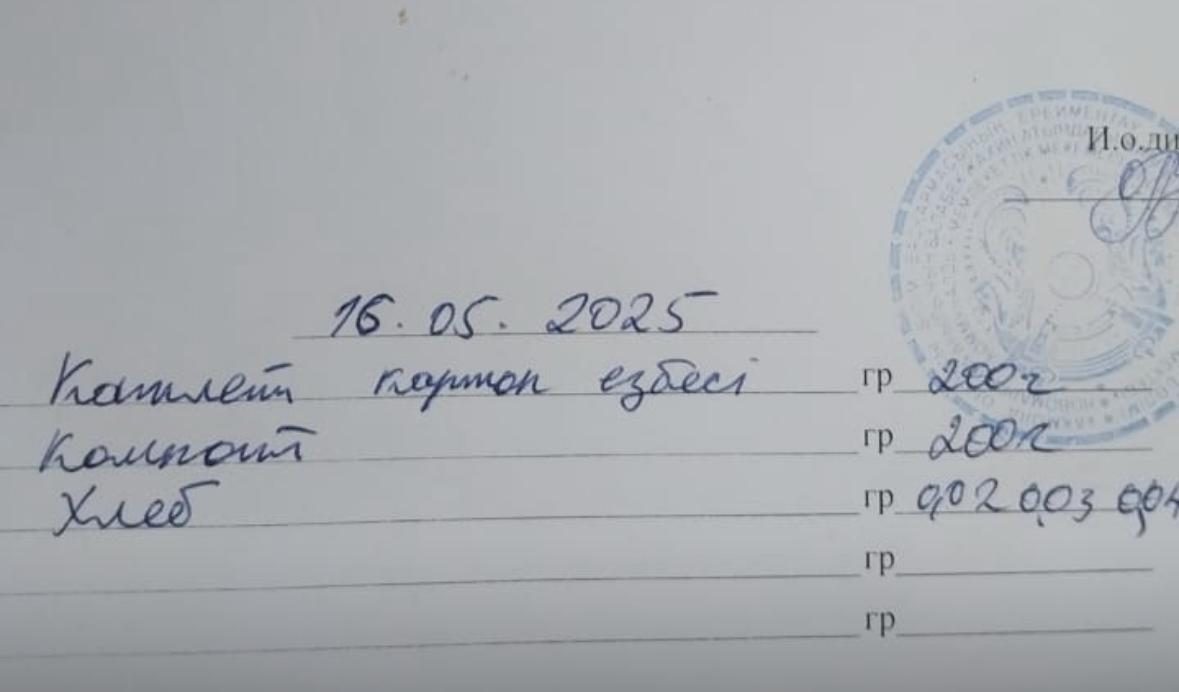 И.о.ди
16.05.2025
Катлет картоп езбесі гр 200г
Компот гр 200г
Хлеб гр 0,02 0,03 0,04
гр
гр